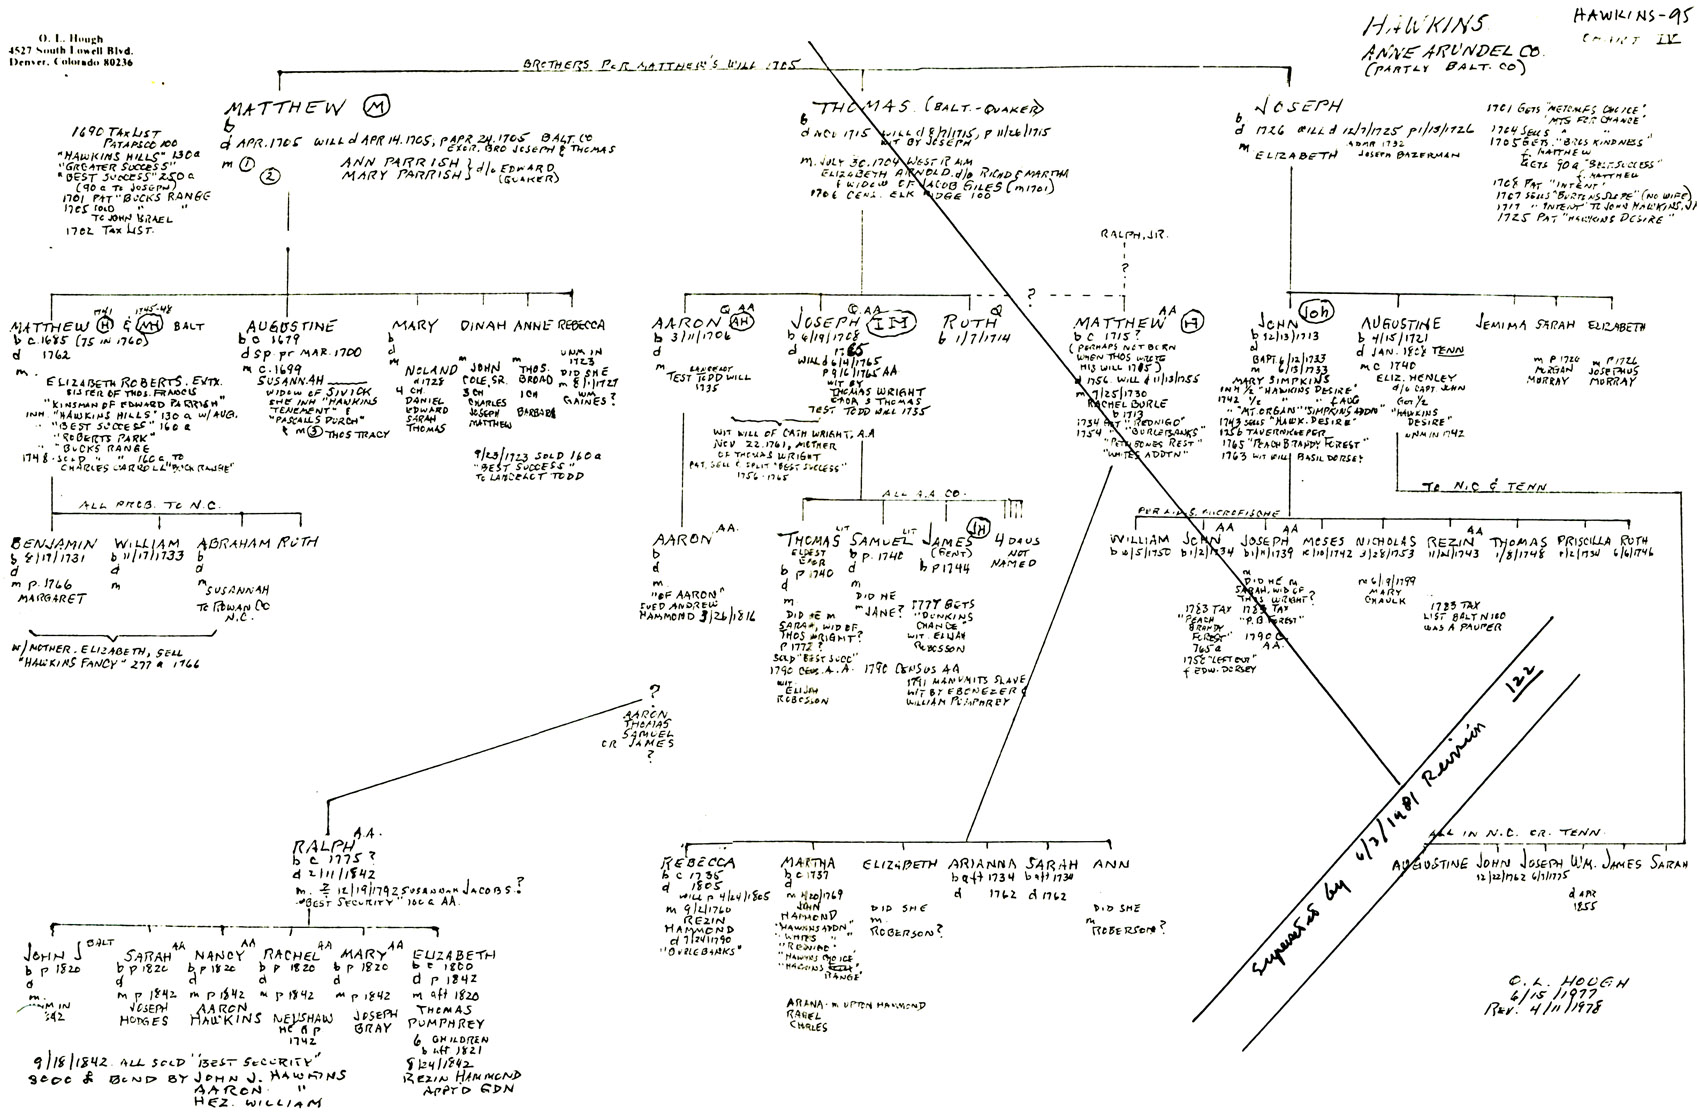 O. L. Hough
4527 South Lowell Blvd.
Denver, Colorado 80236
HAWKINS-95
CHART IV
HAWKINS
ANNE ARUNDEL CO.
(PARTLY BALT. CO)
BROTHERS PER MATTHEW'S WILL 1705
MATTHEW (M)
b
d APR. 1705 WILL d APR 14. 1705, P APR. 24. 1705 BALT. CO
EXOR. BRO JOSEPH & THOMAS
m (1) ANN PARRISH } d/o EDWARD
(2) MARY PARRISH } (QUAKER)
1690 TAX LIST
PATAPSCO 100
"HAWKINS HILLS" 130 a
"GREATER SUCCESS"
"BEST SUCCESS" 250 a
(90 a TO JOSEPH)
1701 PAT "BUCKS RANGE
1705 SOLD " "
TO JOHN ISRAEL
1702 TAX LIST.
THOMAS. (BALT.-QUAKER)
b
d NOV 1715 WILL d 8/7/1715, P 11/26/1715
WIT BY JOSEPH
m. JULY 30, 1704 WEST R AM
ELIZABETH ARNOLD d/o RICHD & MARTHA
& WIDOW OF JACOB GILES (m 1701)
CENS. ELK RIDGE 100
JOSEPH
b
d 1726 WILL d 12/7/1725 P 1/13/1726
ADMR 1732
m ELIZABETH JOSEPH BAZERMAN
1701 GETS "METCALFS CHOICE"
"MTS FOR CHANCE"
1704 SELLS " "
1705 GETS. "BROS KINDNESS"
f. MATTHEW
GETS 90 a "BEST SUCCESS"
f. MATTHEW
PAT "INTENT"
1707 SELLS "BURTENS SLOPE" (NO WIFE)
1717 " "INTENT" TO JOHN HAWKINS, JR
1725 PAT "HAWKINS DESIRE"
RALPH, JR.
?
?
1741 1745-48
MATTHEW (H) & (MH) BALT
b c. 1685 (75 IN 1760)
d 1762
m.
ELIZABETH ROBERTS. EXTX.
SISTER OF THOS. FRANCIS
"KINSMAN OF EDWARD PARRISH"
INH. "HAWKINS HILLS" 130 a W/AUG.
"BEST SUCCESS" 160 a
"ROBERTS PARK"
"BUCKS RANGE
1748 - SOLD " " 160 a, TO
CHARLES CARROLL "BUCK RANGE"
AUGUSTINE
b c 1679
d sp. pr MAR. 1700
m c. 1699
SUSANNAH
WIDOW OF SIVICK
SHE INH "HAWKINS
TENEMENT" &
"PASCALLS PURCH"
& m (3) THOS TRACY
MARY
b
d
m
NOLAND
d 1728
4 CH
DANIEL
EDWARD
SARAH
THOMAS
DINAH
m
JOHN
COLE, SR.
3 CH
CHARLES
JOSEPH
MATTHEW
ANNE
m
THOS.
BROAD
1 CH
BARBARA
REBECCA
UNM IN
1723
DID SHE
m 8/1/1727
WM
GAINES?
9/23/1723 SOLD 160 a
"BEST SUCCESS"
TO LANCELOT TODD
Q AA
AARON (AH)
b 3/11/1706
d
m
LANCELOT
TEST TODD WILL
1735
Q. AA
JOSEPH (IH)
b 6/19/1708
d 1765
WILL d 6/4/1765
P 9/6/1765 AA
WIT BY
THOMAS WRIGHT
EXOR S THOMAS
TEST TODD WILL 1735
Q
RUTH
b 1/7/1714
WIT WILL OF CATH WRIGHT, A.A
NOV 22. 1761, MOTHER
OF THOMAS WRIGHT
PAT, SELL & SPLIT "BEST SUCCESS"
1756-1765
AA
MATTHEW (H)
b c. 1715?
(PERHAPS NOT BORN
WHEN THOS WROTE
HIS WILL 1715)
d 1756 WILL d 11/13/1755
m 7/25/1730
RACHEL BURLE
b 1713
1734 PAT "REDNIGO"
1754 "BURLEBANKS"
"PETTIBONES REST"
"WHITES ADDTN"
JOHN (Joh)
b 12/13/1713
d
BAPT. 6/12/1733
m 6/13/1733
MARY SIMPKINS
INH 1/2 "HAWKINS DESIRE"
1742 1/2 " " f AUG
"MT. ORGAN" "SIMPKINS ADDN"
1743 SELLS "HAWK. DESIRE"
1756 TAVERNKEEPER
1765 "PEACH BRANDY FOREST"
1763 WIT WILL BASIL DORSEY
AUGUSTINE
b 4/15/1721
d JAN. 1808 TENN
m c 1740
ELIZ. HENLEY
d/o CAPT JOHN
GOT 1/2
"HAWKINS
DESIRE"
UNM IN 1742
JEMIMA
SARAH
m P 1726
MORGAN
MURRAY
ELIZABETH
m P 1726
JOSEPHUS
MURRAY
TO N.C & TENN
ALL PROB. TO N.C.
BENJAMIN
b 8/17/1731
d
m p. 1766
MARGARET
WILLIAM
b 11/17/1733
d
m
ABRAHAM
b
d
m
SUSANNAH
TO ROWAN CO
N.C.
RUTH
W/ MOTHER. ELIZABETH, SELL
"HAWKINS FANCY" 277 a 1766
AARON AA.
b
d
m.
"OF AARON"
SUED ANDREW
HAMMOND 3/26/1816
ALL A.A CO.
THOMAS LIT
ELDEST
EXOR
b p 1740
d
m
DID HE m
SARAH, WID OF
THOS WRIGHT?
P 1772?
SOLD "BEST SUCC"
1790 CENS. A.A.
WIT
ELIJAH
ROBOSSON
SAMUEL LIT
b p. 1740
d
DID HE
m JANE?
JAMES (H)
(GENT)
b p 1744
1777 GETS
"DUNKINS
CHANCE"
WIT. ELIJAH
ROBOSSON
1790 CENSUS AA
1791 MANUMITS SLAVE
WIT BY EBENEZER &
WILLIAM PUMPHREY
4 DAUS
NOT
NAMED
PER L.D.S. MICROFISCHE
WILLIAM
JOHN AA
1783 TAX
"PEACH
BRANDY
FOREST"
765 a
"LEFT OUT"
f EDW. DORSEY
JOSEPH AA
m
DID HE m
SARAH, WID OF
THOS WRIGHT?
1783 TAX
"P.B FOREST"
1790 C
AA.
MOSES
NICHOLAS
b 3/28/1753
m 6/19/1799
MARY
CHAULK
REZIN AA
1783 TAX
LIST BALT N 100
WAS A PAUPER
THOMAS
1/8/1748
PRISCILLA
RUTH
6/6/1746
?
AARON
THOMAS
SAMUEL
OR JAMES
?
RALPH A.A.
b c 1775?
d 2/11/1842
m. 2 12/19/1792 SUSANNAH JACOBS?
"BEST SECURITY" 100 a AA.
JOHN J BALT
b p 1820
d
m.
SARAH AA
b p 1820
d
m p 1842
JOSEPH
HODGES
NANCY AA
b p 1820
d
m p 1842
AARON
HAWKINS
RACHEL AA
b p 1820
d
m p 1842
NEWSHAW
MARY AA
b p 1820
d
m p 1842
JOSEPH
GRAY
ELIZABETH
b c 1800
d p 1842
m aft 1820
THOMAS
PUMPHREY
6 CHILDREN
b aft 1821
8/24/1842
REZIN HAMMOND
APPTD GDN
9/18/1842. ALL SOLD "BEST SECURITY"
BOND BY JOHN J. HAWKINS
AARON "
HEZ. WILLIAM
REBECCA
b c 1735
d 1805
WILL P 4/24/1805
m 9/2/1760
REZIN
HAMMOND
d 7/24/1790
"BURLEBANKS"
MARTHA
b c 1737
d
m 4/20/1769
JOHN
HAMMOND
"HAWKINS ADDN"
"WHITES "
"REDNIGO"
"HAWKINS CHOICE"
"HAWKINS RANGE"
ARANA - m UPTON HAMMOND
RAGEL
CHALES
ELIZABETH
DID SHE
m.
ROBERSON?
ARIANNA
b aft 1734
d 1762
SARAH
b aft 1734
d 1762
ANN
DID SHE
m
ROBERSON?
ALL IN N.C. OR. TENN.
AUGUSTINE JOHN JOSEPH WM. JAMES SARAH
12/22/1762 6/7/1775
d APR
1855
Superseded by 6/3/1981 Revision 122
O. L. HOUGH
6/15/1977
REV. 4/11/1978